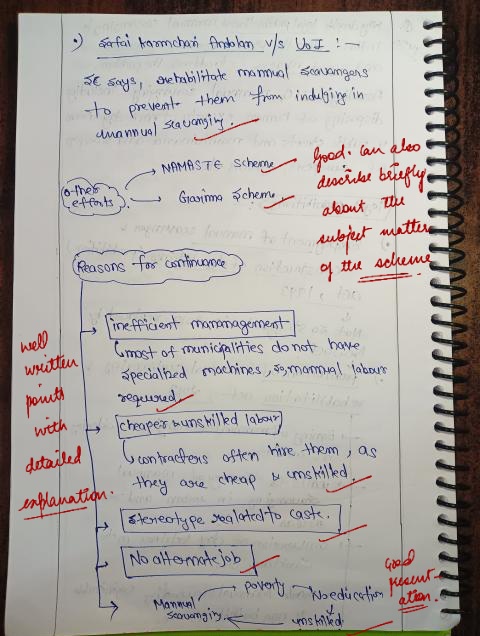 •) Safai Karmchari Andolan V/s UoI :-
SC says, rehabilitate mannual scavangers
to prevent them from indulging in
mannual scavanging.
Other efforts
NAMASTE Scheme
Garima Scheme
Good. Can also
describe briefly
about the
subject matter
of the scheme
Reasons for continuance
inefficient mamanagement
most of municipalities do not have
specialised machines, so manual labour
required
cheaper & unskilled labour
contracters often hire them, as
they are cheap & unskilled.
Stereotype realated to caste.
No alternate job
Mannual scavanging
poverty
No education
unskilled
well
written
points
with
detailed
explanation.
Good
present
ation.